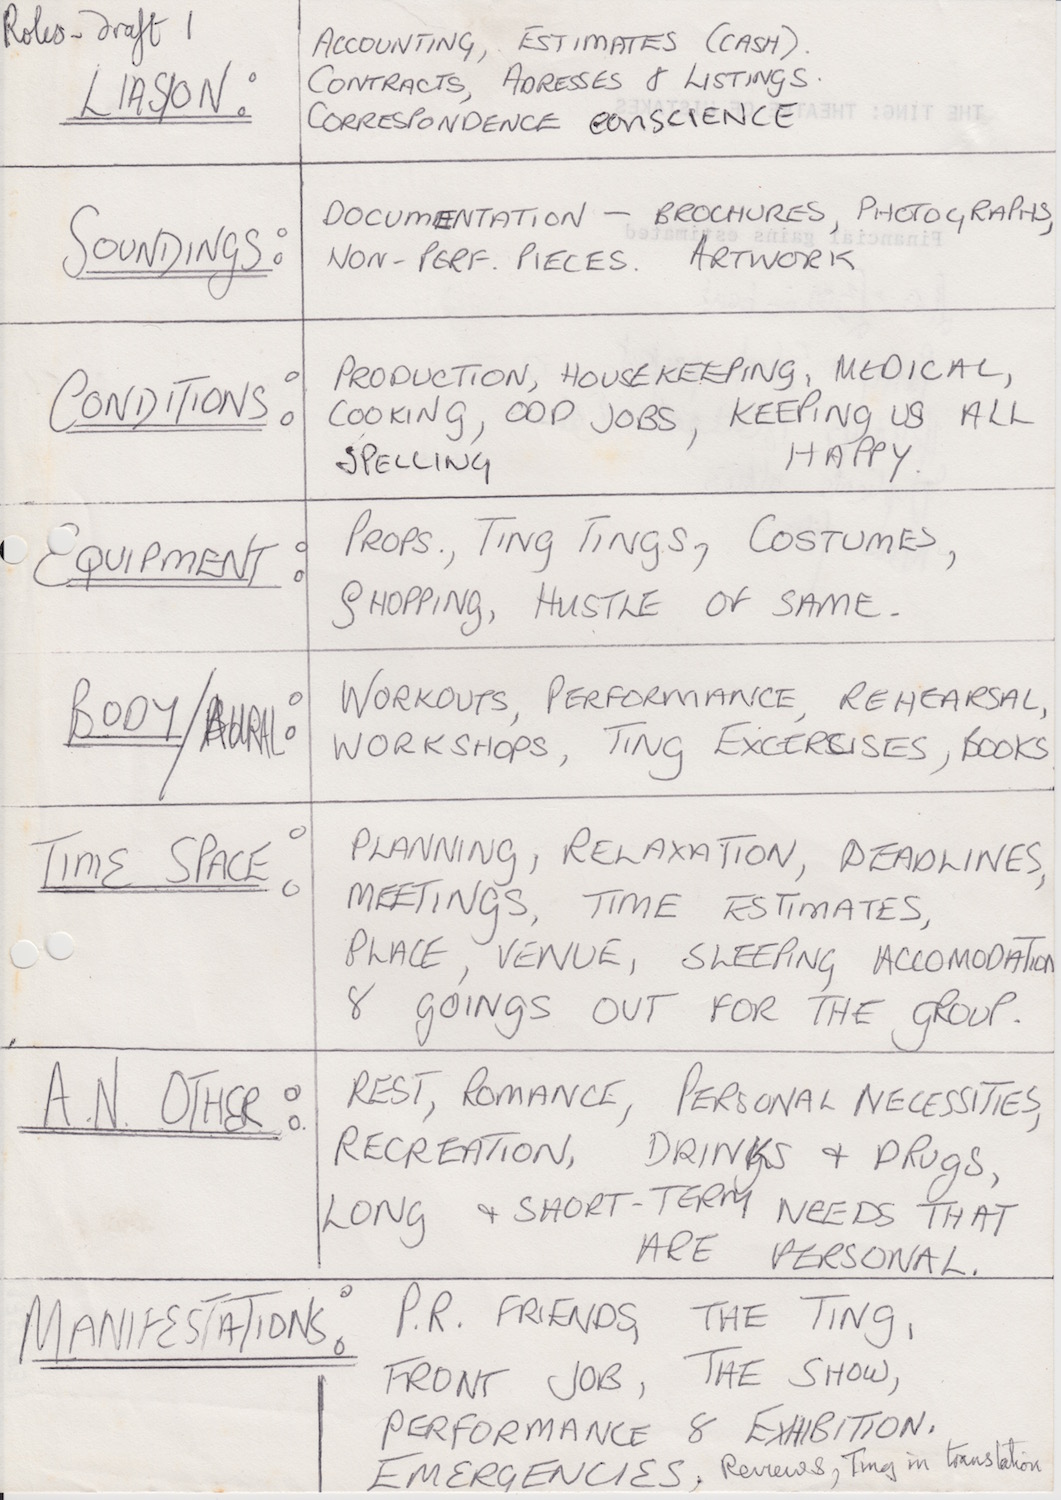 Roles - Draft 1
LIASON:
ACCOUNTING, ESTIMATES (CASH).
CONTRACTS, ADRESSES & LISTINGS.
CORRESPONDENCE CONSCIENCE
THE TING: THEATRE OF MISTAKES
SOUNDINGS:
DOCUMENTATION – BROCHURES, PHOTOGRAPHS,
NON-PERF. PIECES. ARTWORK
Financial gains estimated
CONDITIONS:
PRODUCTION, HOUSEKEEPING, MEDICAL,
COOKING, ODD JOBS, KEEPING US ALL
SPELLING HAPPY.
EQUIPMENT:
PROPS., TING TINGS, COSTUMES,
SHOPPING, HUSTLE OF SAME.
BODY/AURAL:
WORKOUTS, PERFORMANCE, REHEARSAL,
WORKSHOPS, TING EXCERSISES, BOOKS
TIME SPACE:
PLANNING, RELAXATION, DEADLINES,
MEETINGS, TIME ESTIMATES,
PLACE, VENUE, SLEEPING ACCOMODATION
& GOINGS OUT FOR THE GROUP.
A.N. OTHER:
REST, ROMANCE, PERSONAL NECESSITIES,
RECREATION, DRINKS & DRUGS,
LONG & SHORT-TERM NEEDS THAT
ARE PERSONAL.
MANIFESTATIONS:
P.R. FRIENDS, THE TING,
FRONT JOB, THE SHOW,
PERFORMANCE & EXHIBITION.
EMERGENCIES. Reviews, Ting in translation